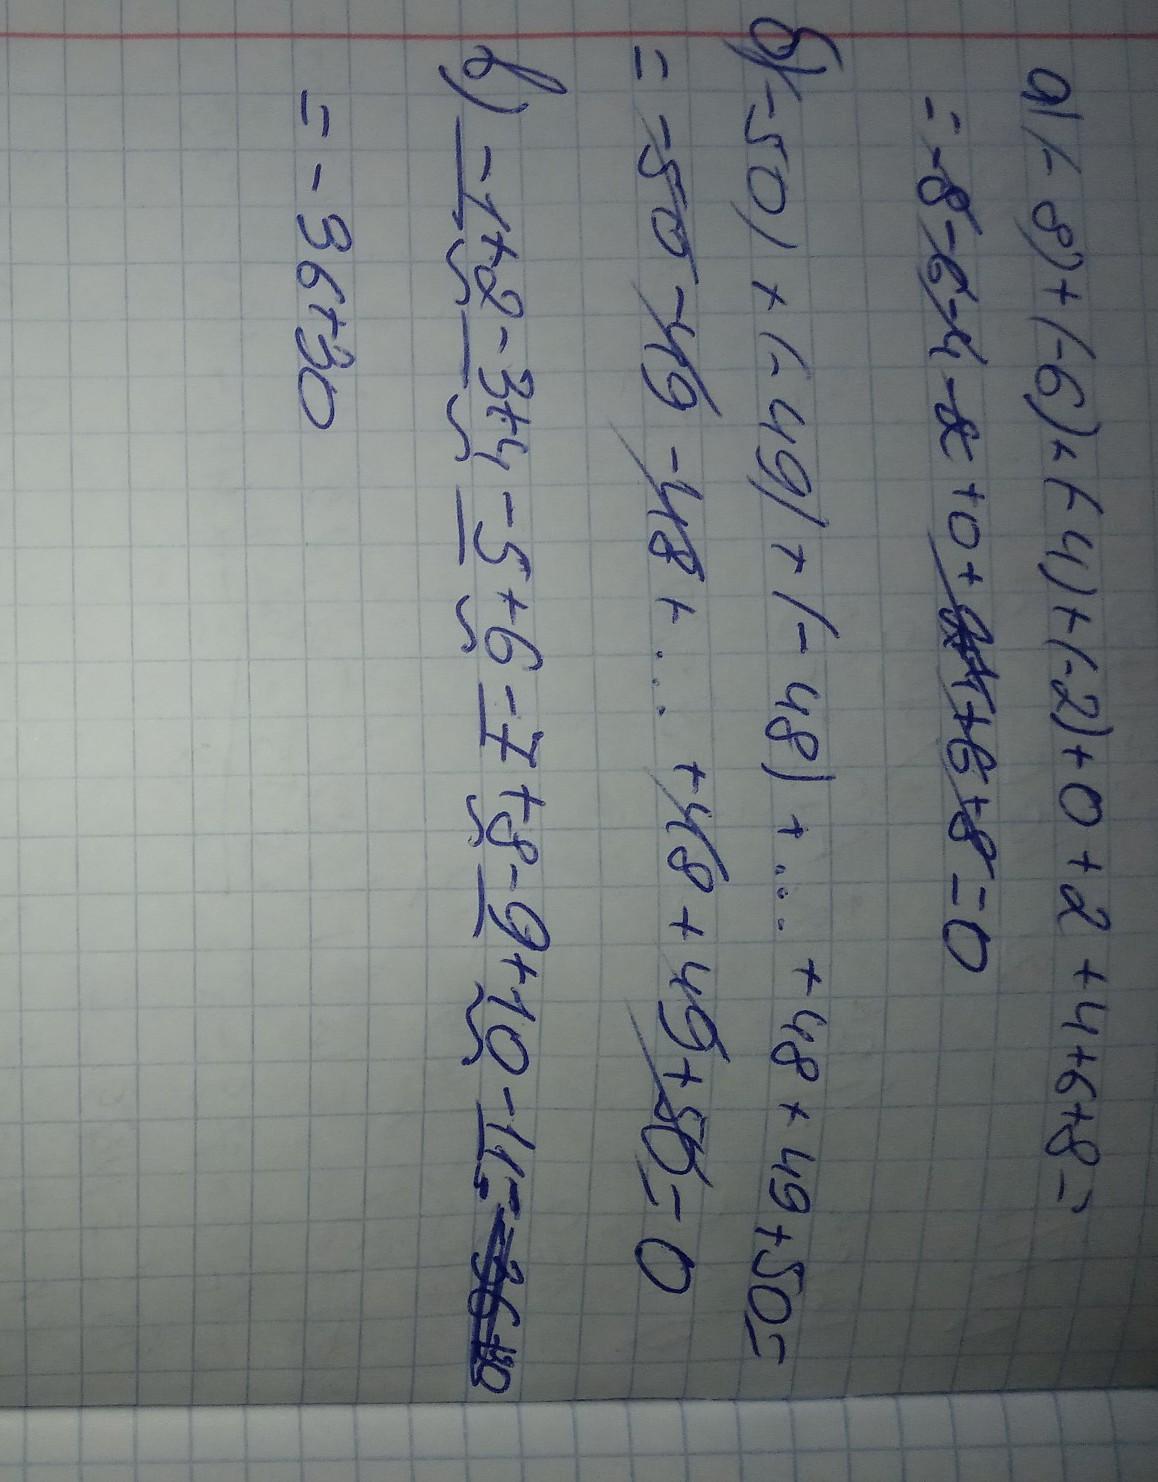 а) (-8)+(-6)+(-4)+(-2)+0+2+4+6+8=
=-8-6-4-2+0+2+4+6+8=0
б)(-50)+(-49)+(-48)+...+48+49+50=
=-50-49-48+...+48+49+50=0
в) -1+2-3+4-5+6-7+8-9+10-11=
=-36+30